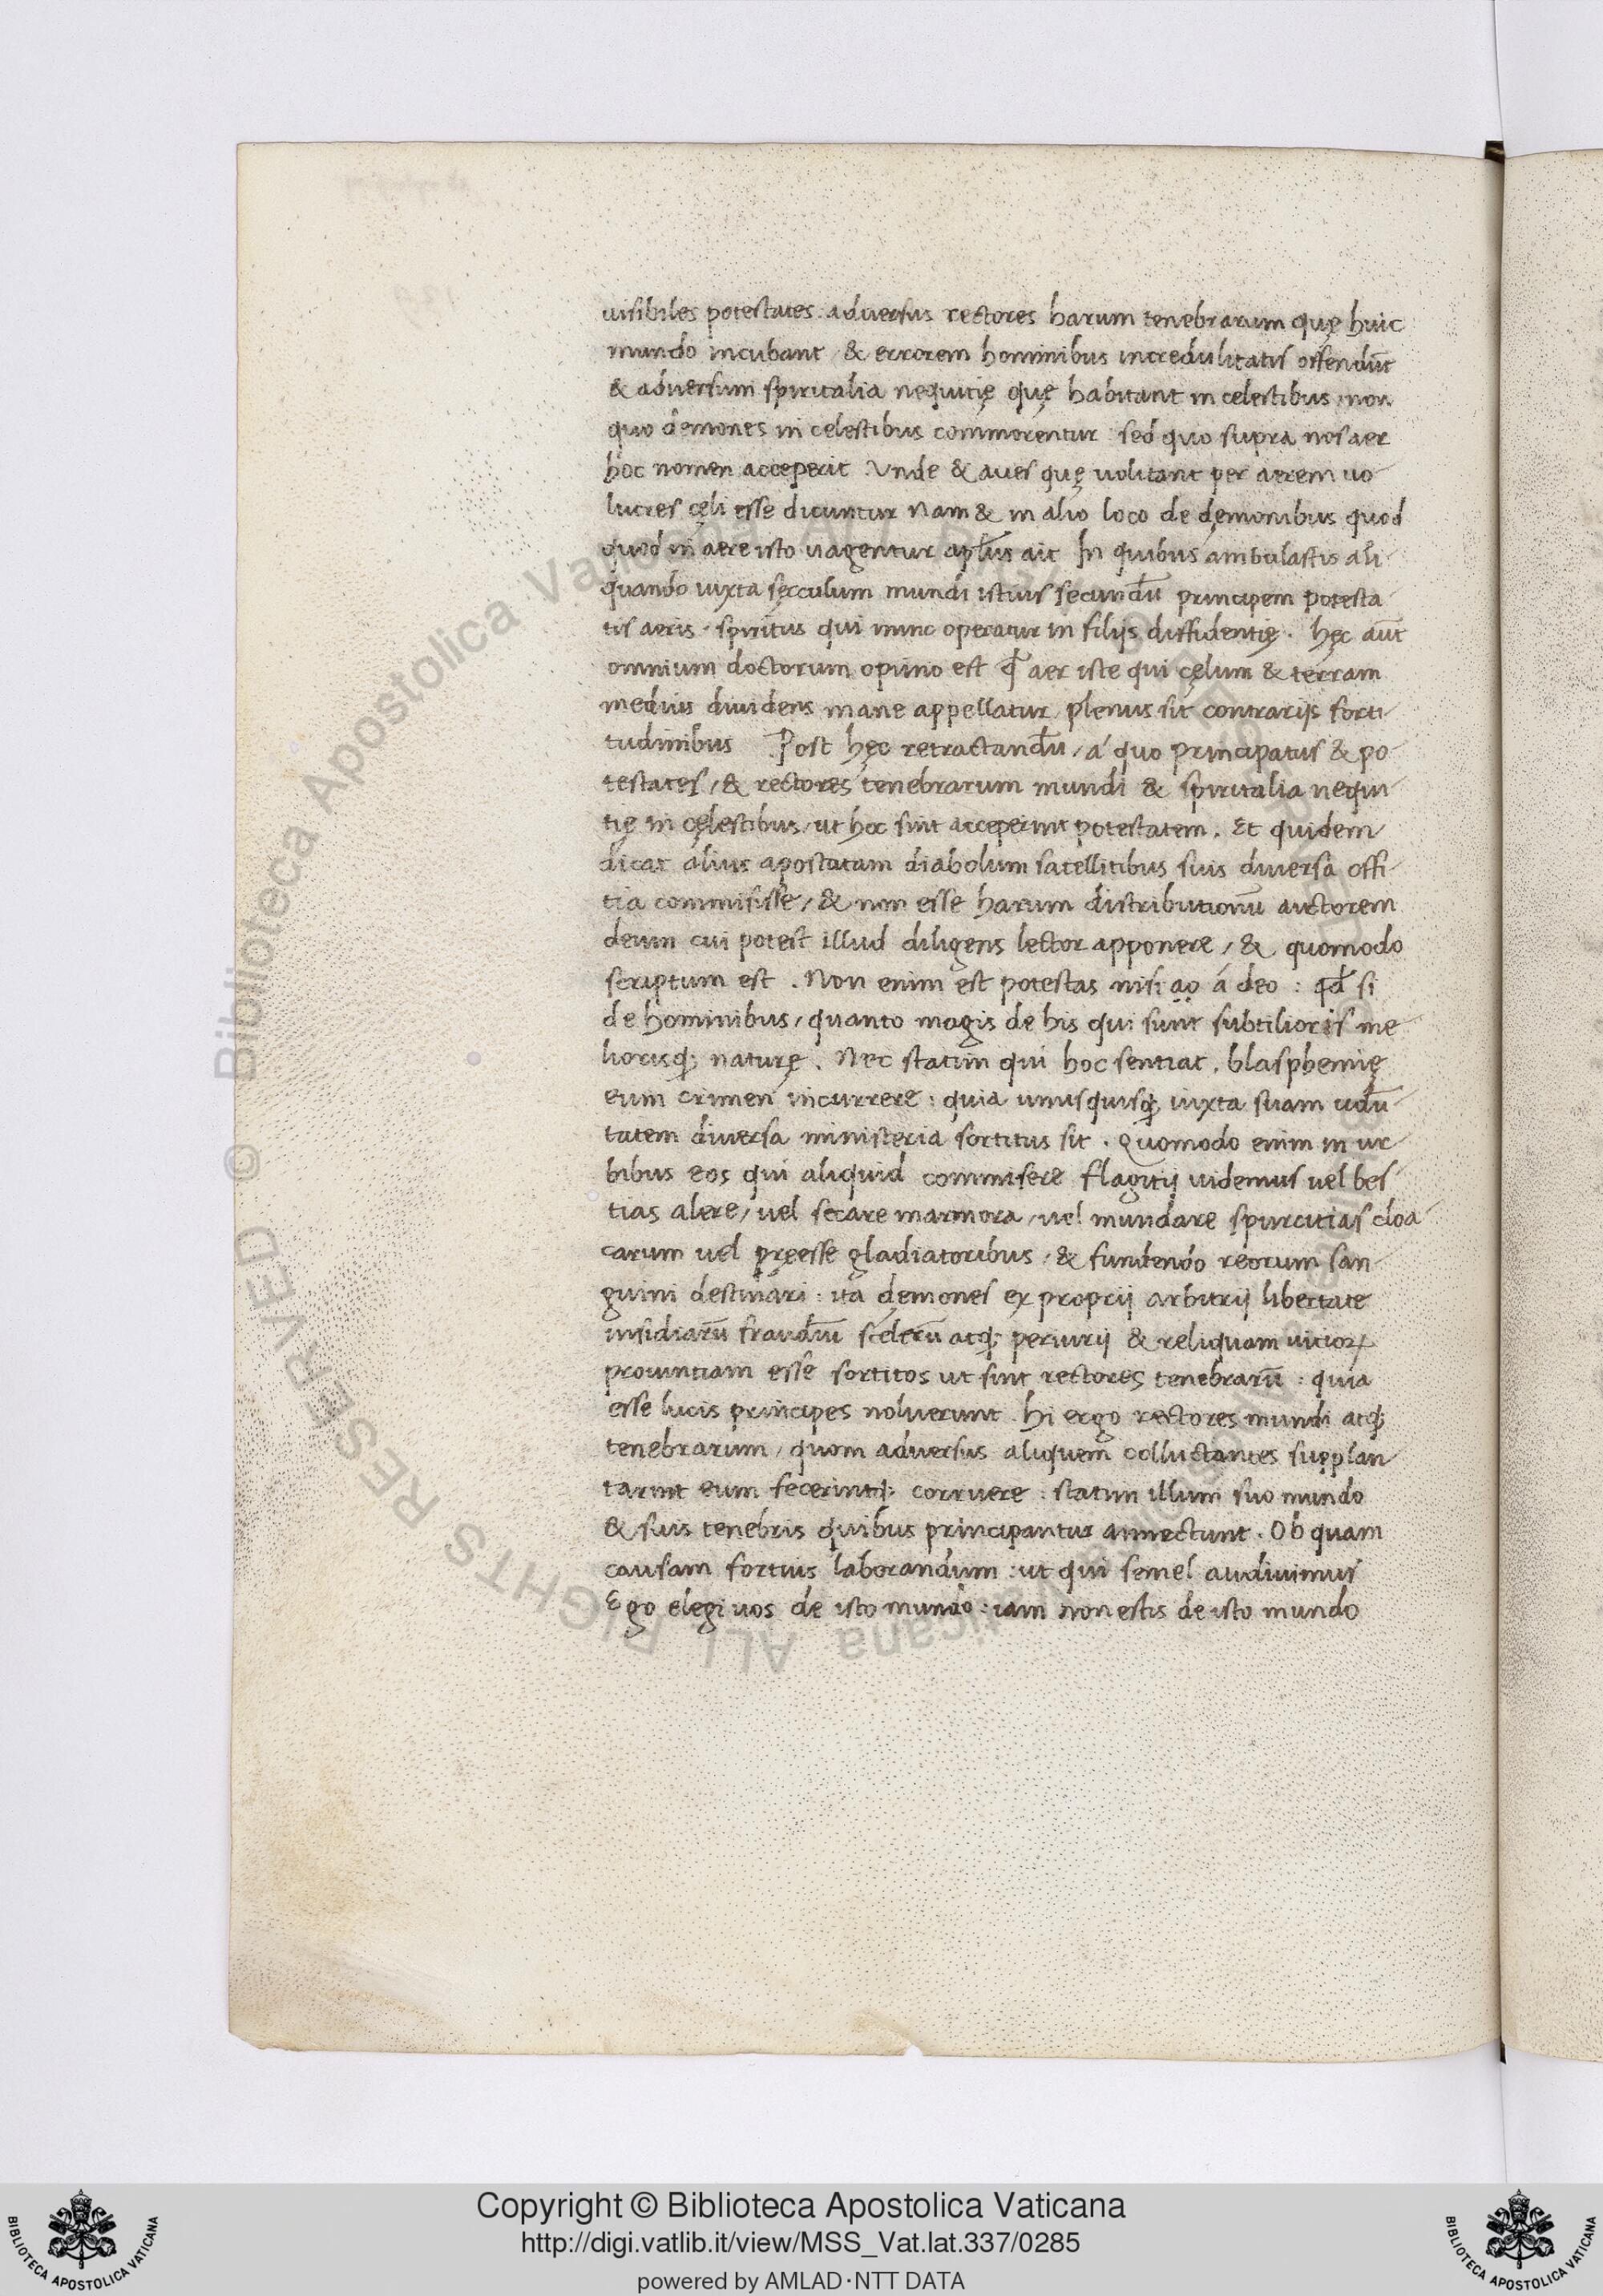 uisibiles potestates. adversus rectores harum tenebrarum quę huic
mundo incubant / & errorem hominibus incredulitatis offendūt
& adversum spiritalia nequitię quę habitant in celestibus, non
quo demones in celestibus commorentur: sed quo supra nos aer
hoc nomen acceperit Unde & aues quę uolitant per aerem uo-
lucres cęli esse dicuntur Nam & in alio loco de dęmonibus quod
quod in aere isto uagentur apl̄us ait In quibus ambulastis ali-
quando iuxta sęcculum mundi istius secundū principem potesta-
tis aeris. spiritus qui nunc operatur in filijs diffidentię. hęc aūt
omnium doctorum opinio est q̄ aer iste qui cęlum & terram
medius diuidens inane appellatur, plenus sit contrarijs forti-
tudinibus Post hęc retractandū / á quo principatus & po-
testates / & rectores tenebrarum mundi & spiritalia nequi-
tię in cęlestibus, ut hoc sint acceperint potestatem. Et quidem
dicat alius apostatam diabolum satellitibus suis diuersa offi-
tia commisisse / & non esse harum distributionū auctorem
deum cui potest illud diligens lector apponere / & quomodo
scriptum est. Non enim est potestas nisi ao á deo: qd̄ si
de hominibus / quanto magis de his qui sunt subtilioris me-
liorisq; naturę. Nec statim qui hoc sentiat, blasphemię
eum crimen incurrere: quia unusquisq; iuxta suam
tatem diuersa ministeria sortitus sit. Quomodo enim in ur-
bibus eos qui aliquid commisere flagitij uidemus uel bes-
tias alere / uel secare marmora / uel mundare spurcitias cloa-
carum uel pręesse gladiatoribus / & fundendo reorum san-
guini destinári: ita dęmones ex proprij arbitrij libertate
insidiarū fraudiū scelerū atq; periurij & reliquam uicioꝝ
prouintiam esse sortitos ut sint rectores tenebrarū: quia
esse lucis principes noluerunt. Hi ergo rectores mundi atq;
tenebrarum / quom adversus aliquem colluctantes supplan-
tarint eum fecerintq; corruere: statim illum suo mundo
& suis tenebris quibus principantur annectunt. Ob quam
causam fortius laborandum: ut qui semel audiuimus
Ego elegi uos de isto mundo: iam non estis de isto mundo
© Biblioteca Apostolica Vaticana ALL RIGHTS RESERVED
Copyright © Biblioteca Apostolica Vaticana
http://digi.vatlib.it/view/MSS_Vat.lat.337/0285
powered by AMLAD·NTT DATA
BIBLIOTECA APOSTOLICA VATICANA
BIBLIOTECA APOSTOLICA VATICANA